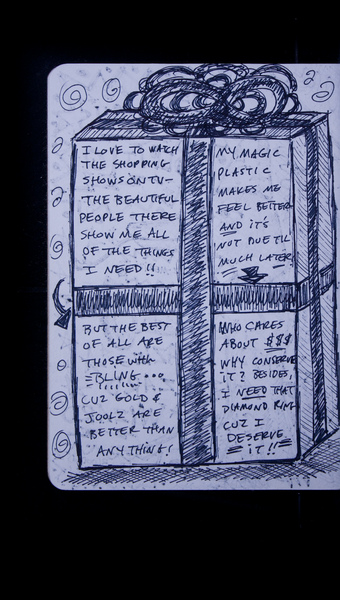 I LOVE TO WATCH
THE SHOPPING
SHOWS ON TV-
THE BEAUTIFUL
PEOPLE THERE
SHOW ME ALL
OF THE THINGS
I NEED!!
BUT THE BEST
OF ALL ARE
THOSE with
BLING...
CUZ GOLD &
JOOLZ ARE
BETTER THAN
ANYTHING!
MY MAGIC
PLASTIC
MAKES ME
FEEL BETTER
AND it's
NOT DUE TIL
MUCH LATER
WHO CARES
ABOUT $$$
WHY CONSERVE
IT? BESIDES,
I NEED THAT
DIAMOND RING
CUZ I
DESERVE
IT!!